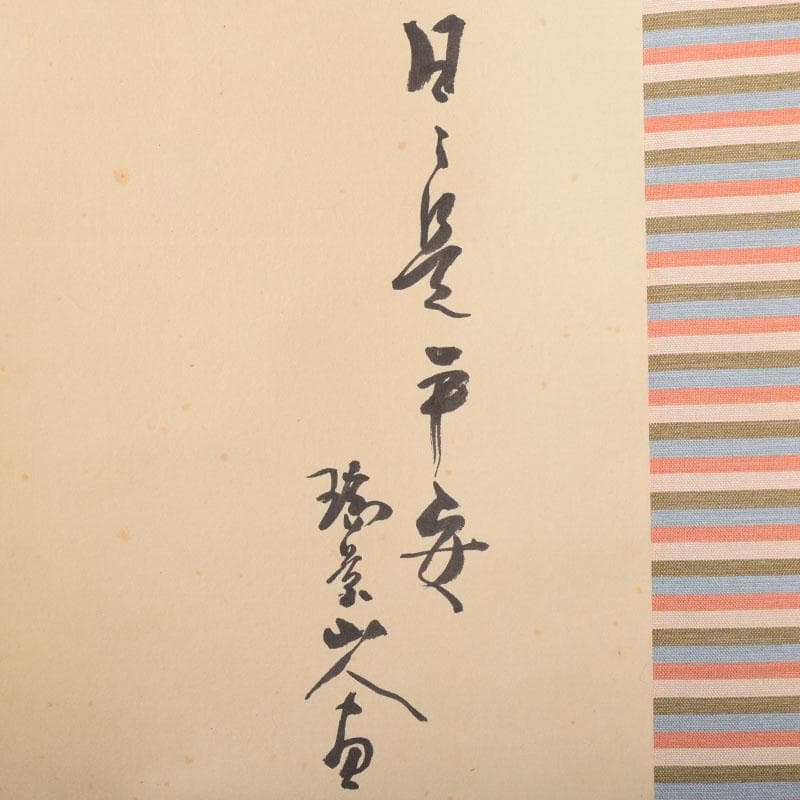 日々是平安
瑞景山人画